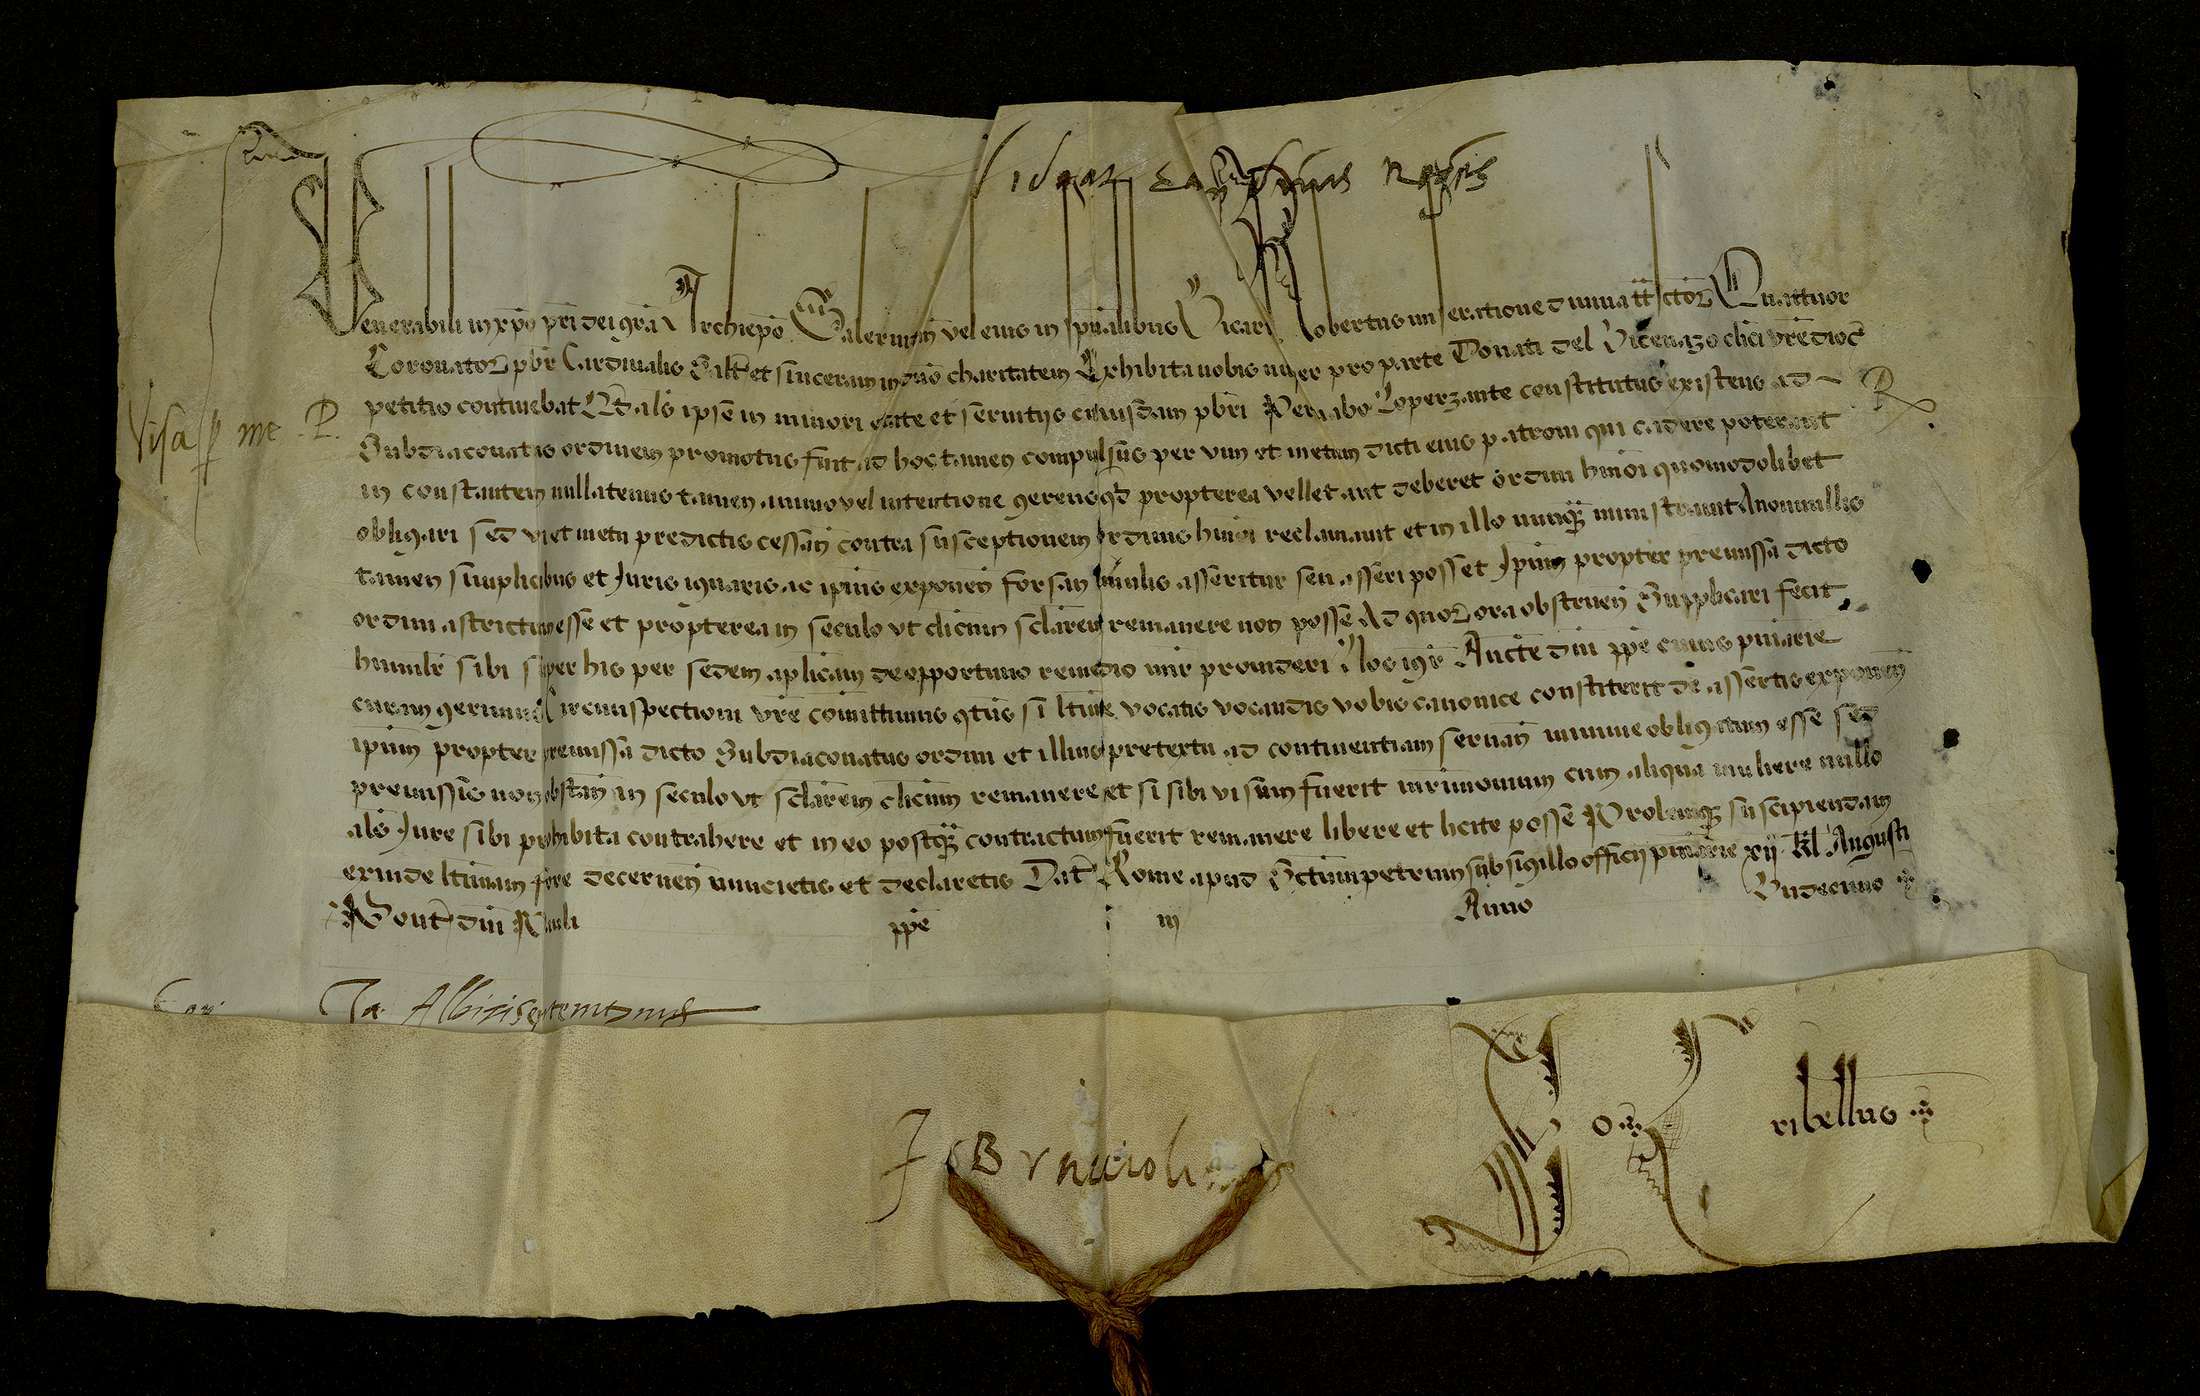 Visa p me .P.
R
Venerabili in xpo pri dei gra Archiepo Salernitan vel eius in spualibus Vicari Robertus miseratione diuina tt sctoꝝ Quattuor
Coronatoꝝ pbr Cardinalis Saltm et sinceram in dno charitatem Exhibita nobis nuper pro parte Donati del clici vre dioc
petitio continebat Qd als ipse in minori etate et seruitijs cuiusdam pbri constitutus existens ad
Subdiaconatus ordinem promotus fuit ad hoc tamen compulsus per vim et metum dicti eius patroni qui cadere poterant
in constantem nullatenus tamen animo vel intentione gerens qd propterea vellet aut deberet ordini hmoi quomodolibet
obligari sed vi et metu predictis cessan contra susceptionem ordinis hmoi reclamauit et in illo nunqꝫ ministrauit A nonnullis
tamen simplicibus et Juris ignaris ac ipius exponen forsan emulis asseritur seu asseri posset Ipum propter premissa dicto
ordini astrictum esse et propterea in seculo vt clicum sclarem remanere non posse Ad quoꝝ ora obstruen Supplicari fecit
humilr sibi super his per sedem aplicam de opportuno remedio mir prouideri Nos igr Aucte dni ppe cuius pniarie
curam gerimus Circumspectioni vre comittimus qtus si Ita e vocatis vocandis vobis canonice constiterit de assertis exponen
ipum propter premissa dicto Subdiaconatus ordini et illius pretextu ad continentiam seruan minime obligatum esse sed
premissis non obstan in seculo vt sclarem clicum remanere et si sibi visum fuerit mrimonium cum aliqua muliere nullo
als Jure sibi prohibita contrahere et in eo postqꝫ contractum fuerit remanere libere et licite posse Prolemqꝫ suscipiendam
exinde ltimam fore decernen nuncietis et declaretis Dat Rome apud Sctumpetrum sub sigillo officij pniarie xij kl Augusti
Pont dni Pauli ppe iij Anno Vndecimo
Ja. Albisis
Jo ribellus